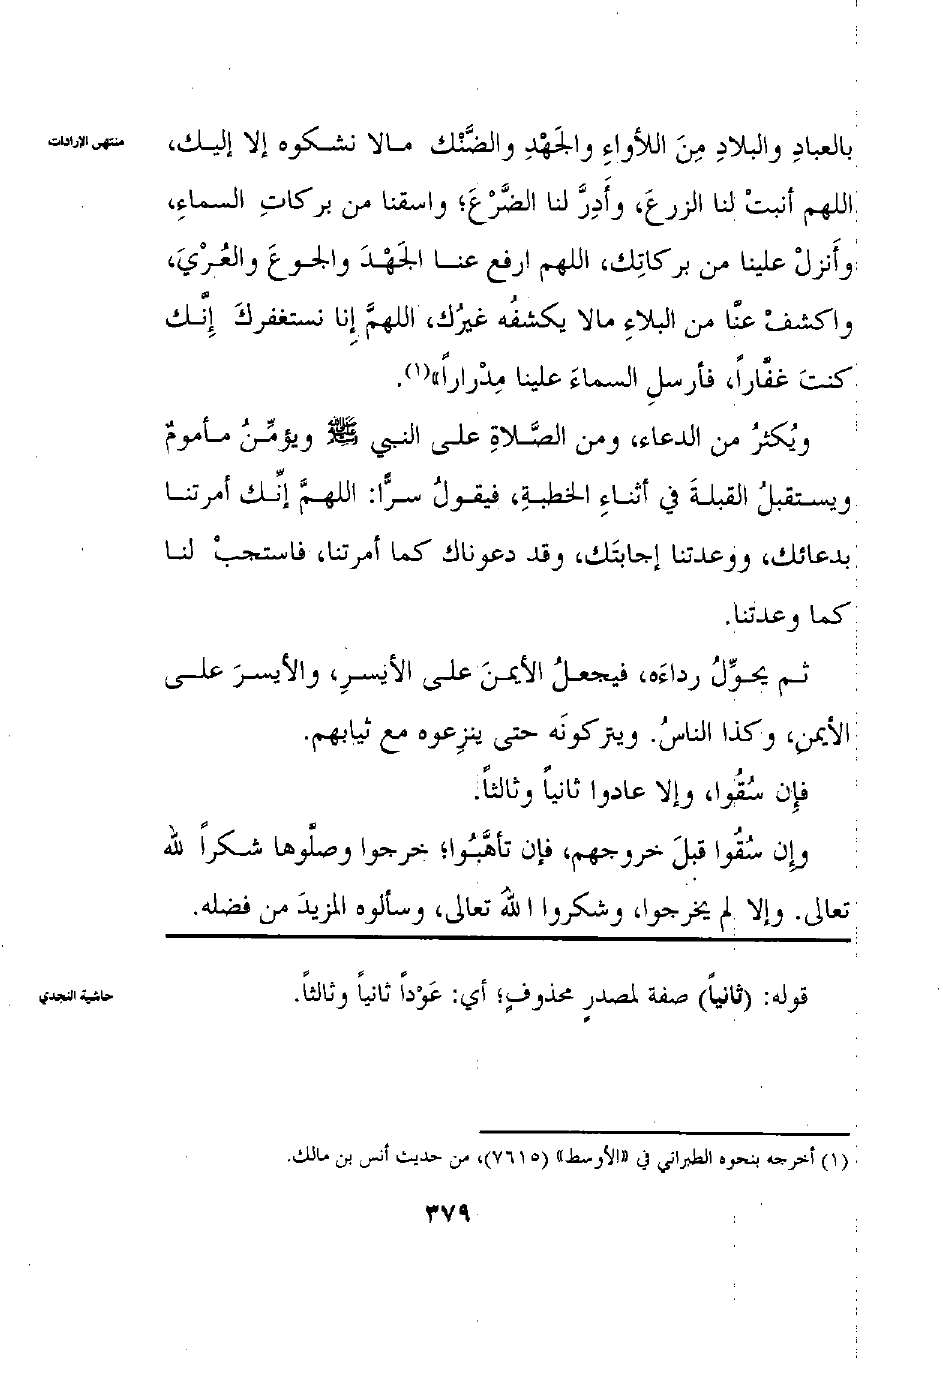 منتهى الإرادات
بالعبادِ والبلادِ مِنَ اللأواءِ والجَهْدِ والضَّنْك مالا نشكوه إلا إليك،
اللهم أنبتْ لنا الزرعَ، وأَدِرَّ لنا الضَّرْعَ؛ واسقنا من بركاتِ السماءِ،
وأَنزلْ علينا من بركاتِك، اللهم ارفع عنا الجَهْدَ والجوعَ والعُرْيَ،
واكشفْ عنَّا من البلاءِ مالا يكشفُه غيرُك، اللهمَّ إِنا نستغفركَ إِنَّك
كنتَ غفَّاراً، فأرسلِ السماءَ علينا مِدْراراً»(١).
ويُكثرُ من الدعاء، ومن الصَّلاةِ على النبي ﷺ ويؤمِّنُ مأمومٌ
ويستقبلُ القبلةَ في أثناءِ الخطبةِ، فيقولُ سرًّا: اللهمَّ إنِّك أمرتنا
بدعائك، ووعدتنا إجابتَك، وقد دعوناك كما أمرتنا، فاستجبْ لنا
كما وعدتنا.
ثم يحوِّلُ رداءَه، فيجعلُ الأيمنَ على الأيسرِ، والأيسرَ على
الأيمنِ، وكذا الناسُ. ويتركونَه حتى ينزِعوه مع ثيابهم.
فإِن سُقُوا، وإلا عادوا ثانياً وثالثاً.
وإِن سُقُوا قبلَ خروجهم، فإن تأهَّبُوا؛ خرجوا وصلَّوها شكراً لله
تعالى. وإلا لم يخرجوا، وشكروا اللهَ تعالى، وسألوه المزيدَ من فضله.
حاشية النجدي
قوله: (ثانياً) صفة لمصدرٍ محذوفٍ؛ أي: عَوْداً ثانياً وثالثاً.
(١) أخرجه بنحوه الطبراني في «الأوسط» (٧٦١٥)، من حديث أنس بن مالك.
٣٧٩